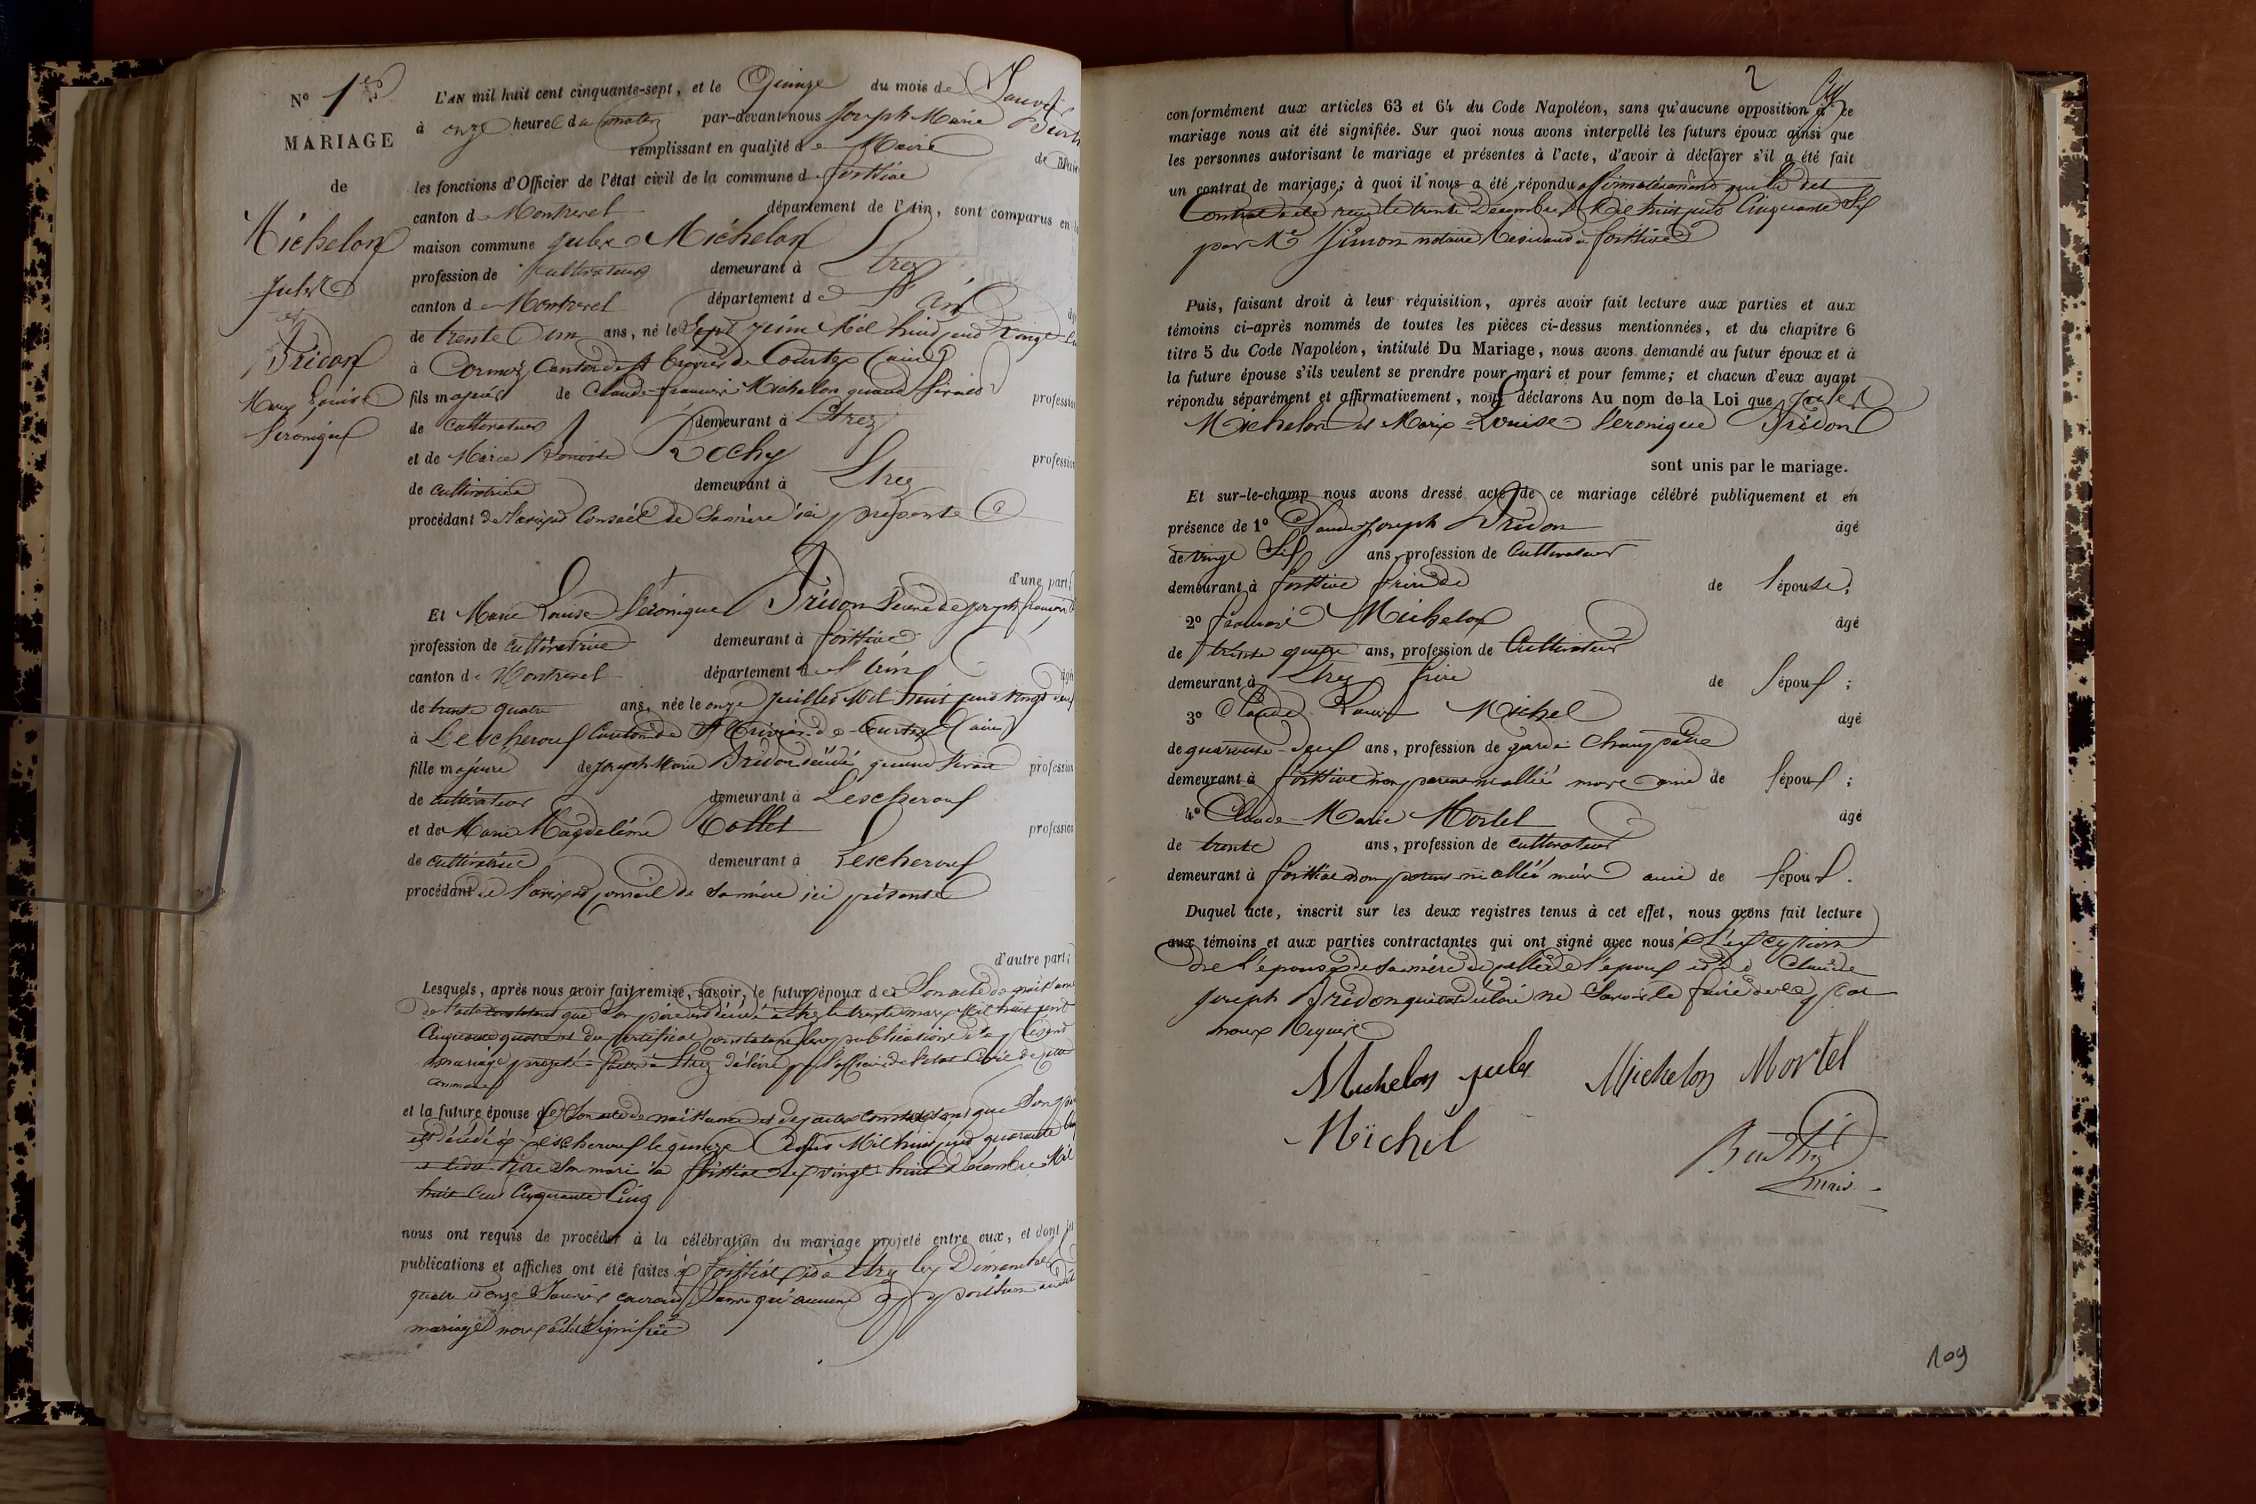 N° 1er
MARIAGE
de
Michelon
Jules
et
Bridon
Marie Louise
Véronique
L'AN mil huit cent cinquante-sept, et le Quinze du mois de Janvier
à onze heures du matin par-devant nous Joseph Marie
remplissant en qualité de Maire
les fonctions d'Officier de l'état civil de la commune de
canton de Montrevel département de l'Ain, sont comparus en la
maison commune Jules Michelon
profession de Cultivateur demeurant à Etrez
canton de Montrevel département de l'Ain
de trente un ans, né le Sept juin Mil huit cent vingt
à Cormoz Canton de St Trivier de Courtes (ain)
fils majeur de Claude françois Michelon quand vivait profession
de Cultivateur demeurant à Etrez
et de Marie Rochy profession
de Cultivatrice demeurant à Etrez
procédant de l'avis et Conseil de Sa mère ici présente
d'une part;
Et Marie Louise Véronique Bridon veuve de joseph françois
profession de Cultivatrice demeurant à
canton de Montrevel département de l'Ain
de trente quatre ans, née le onze juillet Mil huit cent vingt deux
à Lescheroux Canton de St Trivier de Courtes (ain)
fille majeure de Joseph Marie Bridon décédé quand vivait profession
de Cultivateur demeurant à Lescheroux
et de Marie Magdeleine Collet profession
de Cultivatrice demeurant à Lescheroux
procédant de l'avis et Conseil de Sa mère ici présente
d'autre part;
Lesquels, après nous avoir fait remise, savoir, le futur époux de Son acte de naissance
de l'acte constatant que Son père est décédé à Etrez le trente mars Mil huit cent
Cinquante quatre et du Certificat constatant les publications de
mariage projeté faites à Etrez délivré par l'officier de l'état Civil de cette
Commune
et la future épouse de Son acte de naissance et des actes constatant que Son père
est décédé à Lescheroux le quinze Mil huit cent quarante
et Son mari à le vingt huit Décembre Mil
huit Cent Cinquante Cinq
nous ont requis de procéder à la célébration du mariage projeté entre eux, et dont les
publications et affiches ont été faites à et à Etrez les Dimanches
quatre et onze Janvier courant Sans qu'aucune opposition audit
mariage nous ait été Signifiée
2
conformément aux articles 63 et 64 du Code Napoléon, sans qu'aucune opposition à ce
mariage nous ait été signifiée. Sur quoi nous avons interpellé les futurs époux ainsi que
les personnes autorisant le mariage et présentes à l'acte, d'avoir à déclarer s'il a été fait
un contrat de mariage; à quoi il nous a été répondu affirmativement que le dit
Contrat a été reçu le trente Décembre Mil huit cent Cinquante Six
par Me Simon notaire Résidant à
Puis, faisant droit à leur réquisition, après avoir fait lecture aux parties et aux
témoins ci-après nommés de toutes les pièces ci-dessus mentionnées, et du chapitre 6
titre 5 du Code Napoléon, intitulé Du Mariage, nous avons demandé au futur époux et à
la future épouse s'ils veulent se prendre pour mari et pour femme; et chacun d'eux ayant
répondu séparément et affirmativement, nous déclarons Au nom de la Loi que Jules
Michelon et Marie Louise Véronique Bridon
sont unis par le mariage.
Et sur-le-champ nous avons dressé acte de ce mariage célébré publiquement et en
présence de 1° Claude Joseph Bridon âgé
de vingt Six ans, profession de Cultivateur
demeurant à frère de de l'épouse;
2° françois Michelon âgé
de trente quatre ans, profession de Cultivateur
demeurant à Etrez frère de l'époux;
3° Claude Louis Michel âgé
de quarante-deux ans, profession de garde Champêtre
demeurant à non parent ni allié mais ami de l'époux;
4° Claude Marie Mortel âgé
de trente ans, profession de Cultivateur
demeurant à non parent ni allié mais ami de l'époux.
Duquel acte, inscrit sur les deux registres tenus à cet effet, nous avons fait lecture
aux témoins et aux parties contractantes qui ont signé avec nous à l'exception
de l'épouse de Sa mère de celle de l'époux et de Claude
joseph Bridon qui ont déclaré ne Savoir le faire de ce par
nous Requis
Michelon jules Michelon Mortel
Michel
maire
109